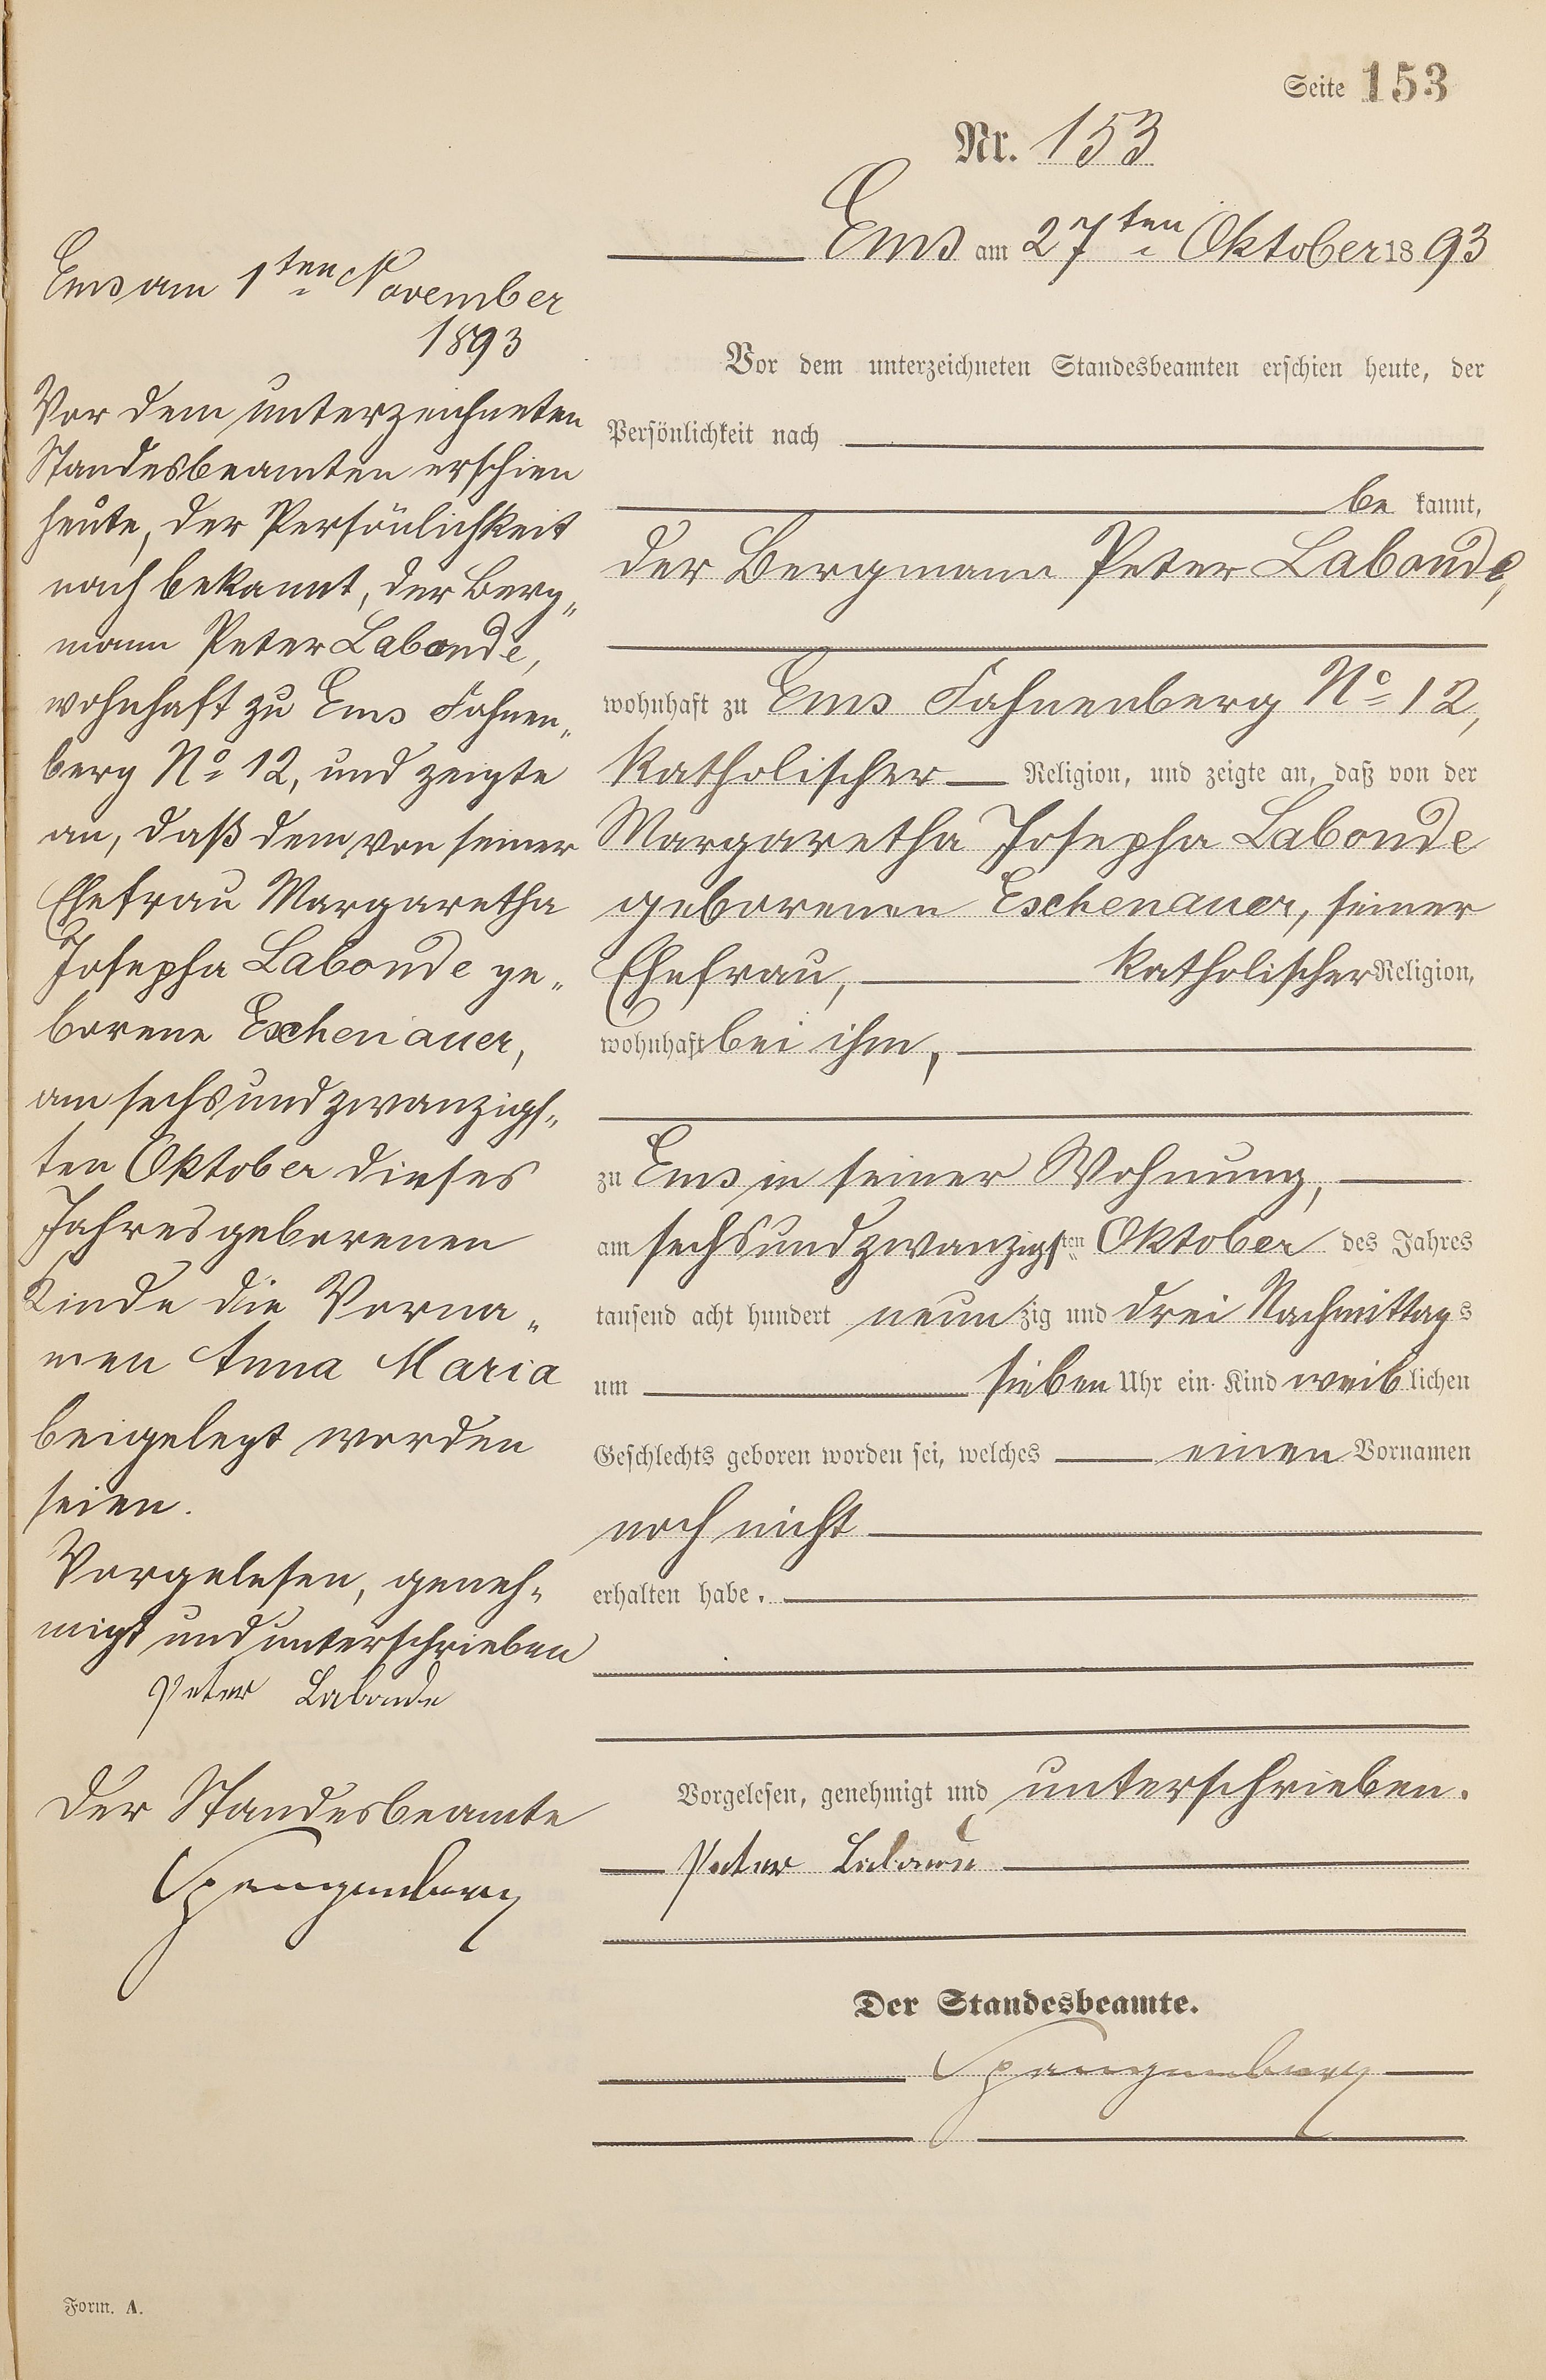 Seite 153
Nr. 153
Ems am 27ten Oktober 1893
Vor dem unterzeichneten Standesbeamten erschien heute, der
Persönlichkeit nach
be kannt,
der Bergmann Peter Labonde,
wohnhaft zu Ems Fahnenberg No 12,
katholischer Religion, und zeigte an, daß von der
Margaretha Josepha Labonde
geborenen Eschenauer, seiner
Ehefrau, katholischer Religion,
wohnhaft bei ihm,
zu Ems in seiner Wohnung,
am sechsundzwanzigsten Oktober des Jahres
tausend acht hundert neunzig und drei Nachmittags
um sieben Uhr ein Kind weiblichen
Geschlechts geboren worden sei, welches einen Vornamen
noch nicht
erhalten habe.
Vorgelesen, genehmigt und unterschrieben.
Peter
Der Standesbeamte.
Spangenberg
Ems am 1ten November
1893
Vor dem unterzeichneten
Standesbeamten erschien
heute, der Persönlichkeit
nach bekannt, der Berg„
mann Peter Labonde,
wohnhaft zu Ems Fahnen„
berg No 12, und zeigte
an, daß dem von seiner
Ehefrau Margaretha
Josepha Labonde ge„
borene Eschenauer,
am sechsundzwanzigs„
ten Oktober dieses
Jahres geborenen
Kinde die Vorna„
men Anna Maria
beigelegt worden
seien.
Vorgelesen, geneh„
migt und unterschrieben
Peter Labonde
Der Standesbeamte
Spangenberg
Form. A.